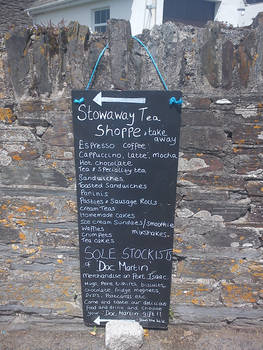 Stowaway Tea
Shoppe & take
away
Espresso coffee
Cappuccino, latte, mocha
Hot chocolate
Tea & Speciality tea
Sandwiches
Toasted Sandwiches
Paninis
Pasties & Sausage Rolls
Cream Teas
Homemade cakes
Ice cream Sundaes/smoothie
Waffles milkshakes
Crumpets
Tea cakes
SOLE STOCKISTS
of "Doc Martin"
Merchandise in Port Isaac
Mugs, Pens, t.shirts, biscuits,
chocolate, fridge magnets,
DVDs, Postcards etc
Come and taste our delicious
food and drink and choose
your "Doc Martin" gift!!